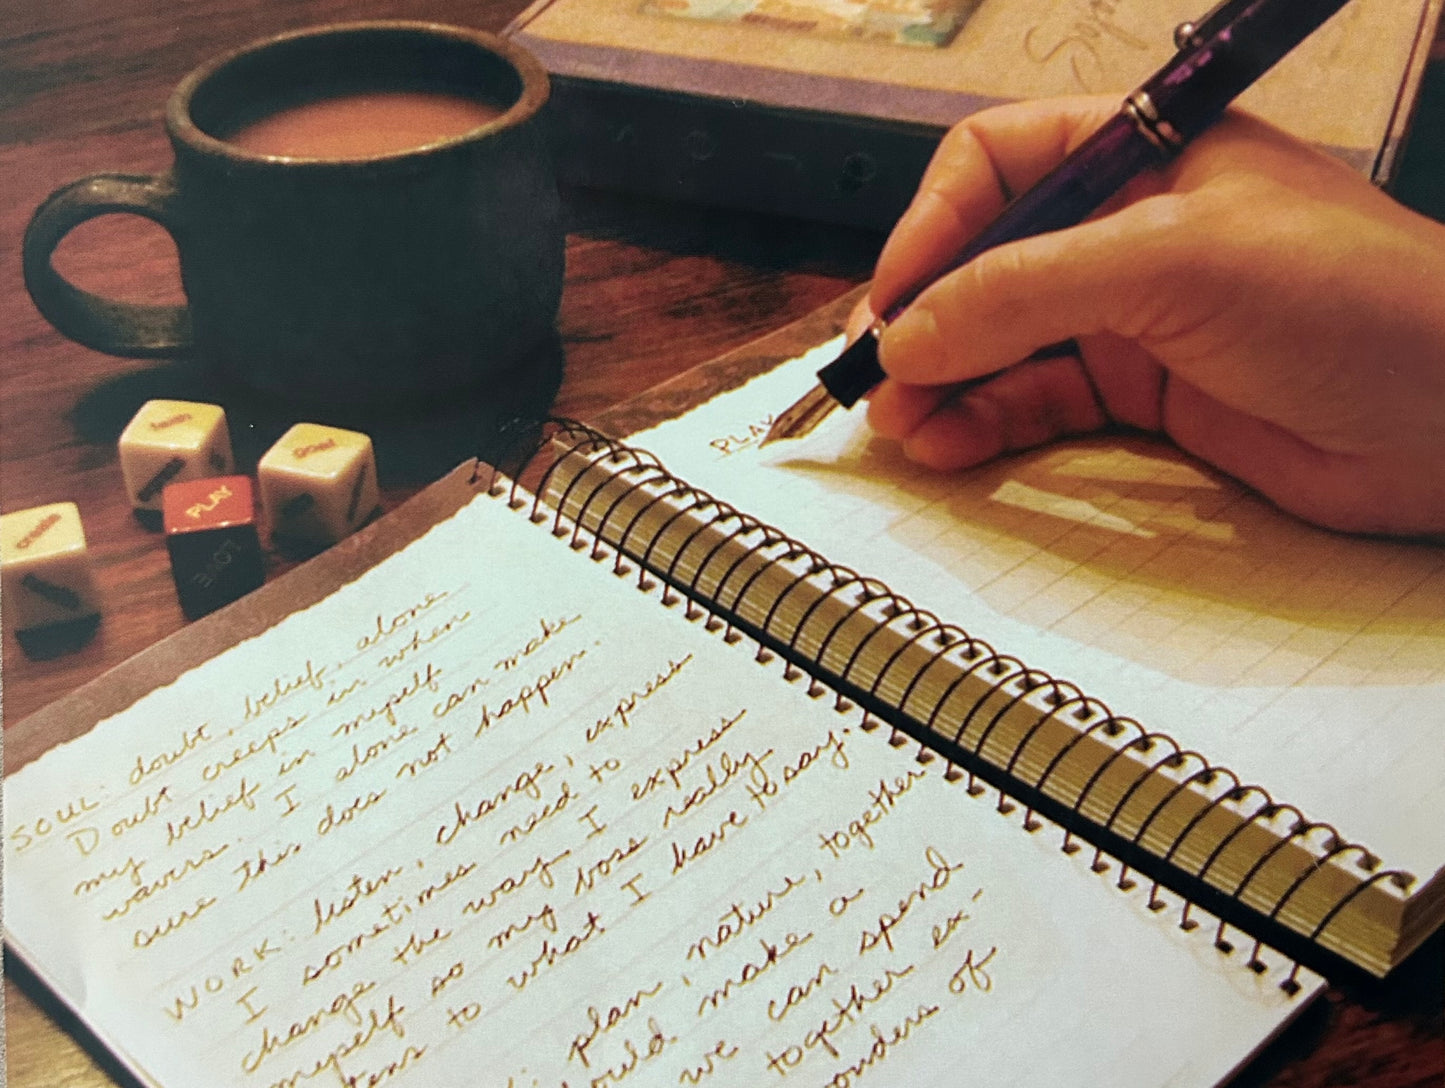 PLAY
LOVE
PLAY
SOUL: doubt, belief, alone
Doubt creeps in when
my belief in myself
wavers. I alone can make
sure this does not happen.
WORK: listen, change, express
I sometimes need to
change the way I express
myself so my boss really
tens to what I have to say.
: plan, nature, together
ould make a
we can spend
together ex-
onders of